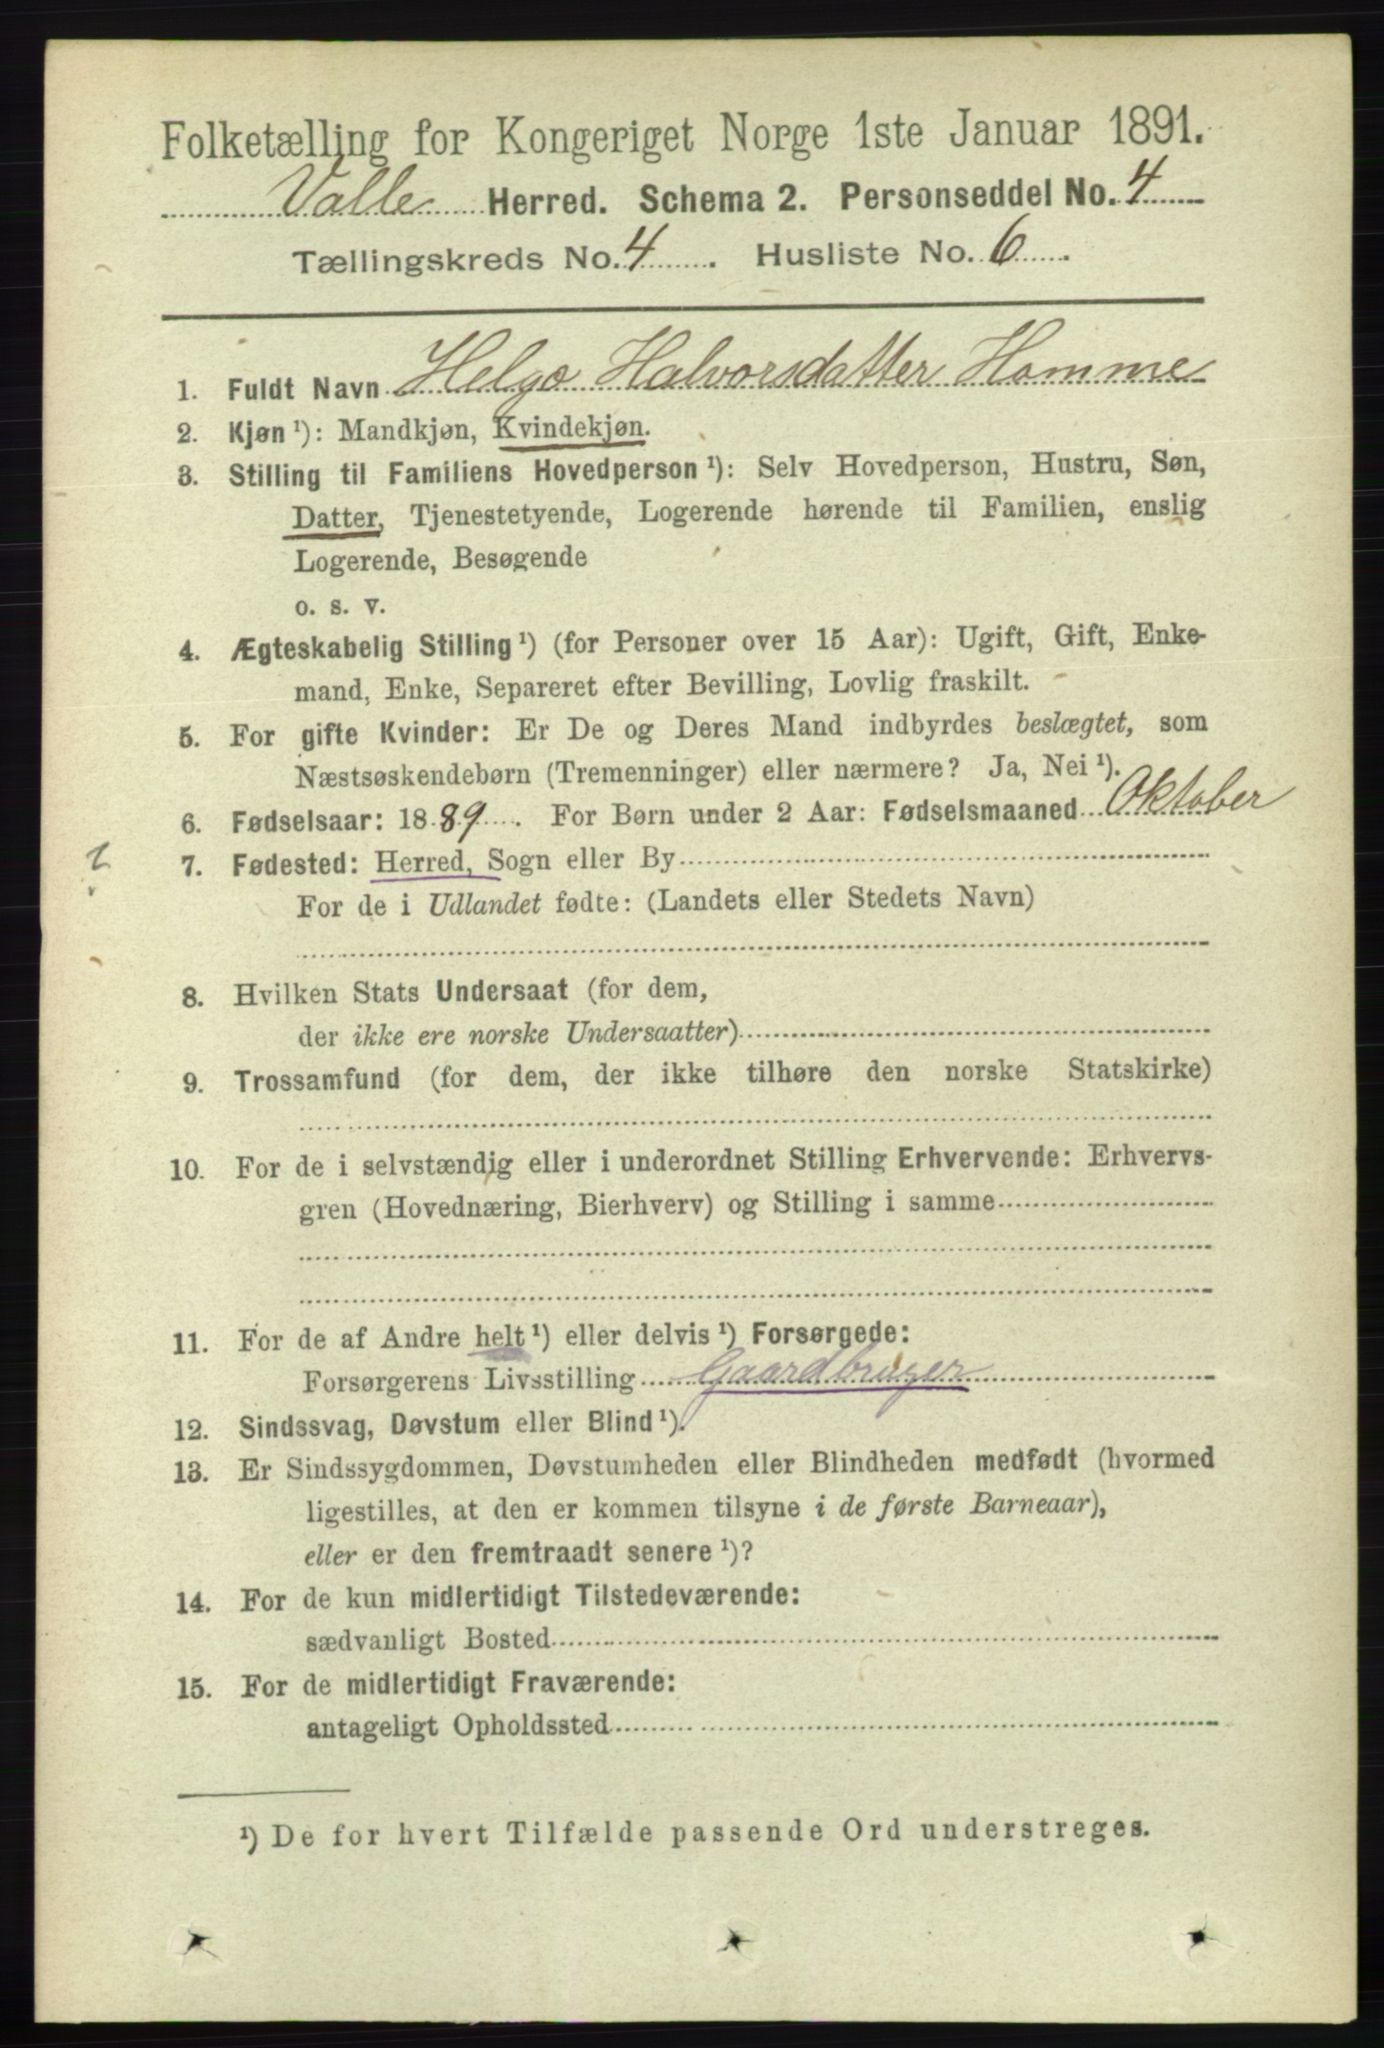 Folketælling for Kongeriget Norge 1ste Januar 1891.
Valle Herred. Schema 2. Personseddel No. 4
Tællingskreds No. 4. Husliste No. 6.
1. Fuldt Navn Helga Halvorsdatter Homme
2. Kjøn ¹): Mandkjøn, Kvindekjøn.
3. Stilling til Familiens Hovedperson ¹): Selv Hovedperson, Hustru, Søn,
Datter, Tjenestetyende, Logerende hørende til Familien, enslig
Logerende, Besøgende
o. s. v.
4. Ægteskabelig Stilling ¹) (for Personer over 15 Aar): Ugift, Gift, Enke-
mand, Enke, Separeret efter Bevilling, Lovlig fraskilt.
5. For gifte Kvinder: Er De og Deres Mand indbyrdes beslægtet, som
Næstsøskendebørn (Tremenninger) eller nærmere? Ja, Nei ¹).
6. Fødselsaar: 1889. For Børn under 2 Aar: Fødselsmaaned Oktober
? 7. Fødested: Herred, Sogn eller By
For de i Udlandet fødte: (Landets eller Stedets Navn)
8. Hvilken Stats Undersaat (for dem,
der ikke ere norske Undersaatter)
9. Trossamfund (for dem, der ikke tilhøre den norske Statskirke)
10. For de i selvstændig eller i underordnet Stilling Erhvervende: Erhvervs-
gren (Hovednæring, Bierhverv) og Stilling i samme
11. For de af Andre helt ¹) eller delvis ¹) Forsørgede:
Forsørgerens Livsstilling Gaardbruger
12. Sindssvag, Døvstum eller Blind ¹).
13. Er Sindssygdommen, Døvstumheden eller Blindheden medfødt (hvormed
ligestilles, at den er kommen tilsyne i de første Barneaar),
eller er den fremtraadt senere ¹)?
14. For de kun midlertidigt Tilstedeværende:
sædvanligt Bosted
15. For de midlertidigt Fraværende:
antageligt Opholdssted
¹) De for hvert Tilfælde passende Ord understreges.